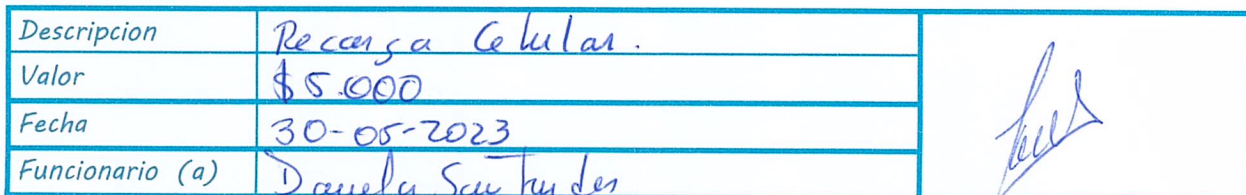 Descripcion Recarga Celular.
Valor $5.000
Fecha 30-05-2023
Funcionario (a) Daniela Santander